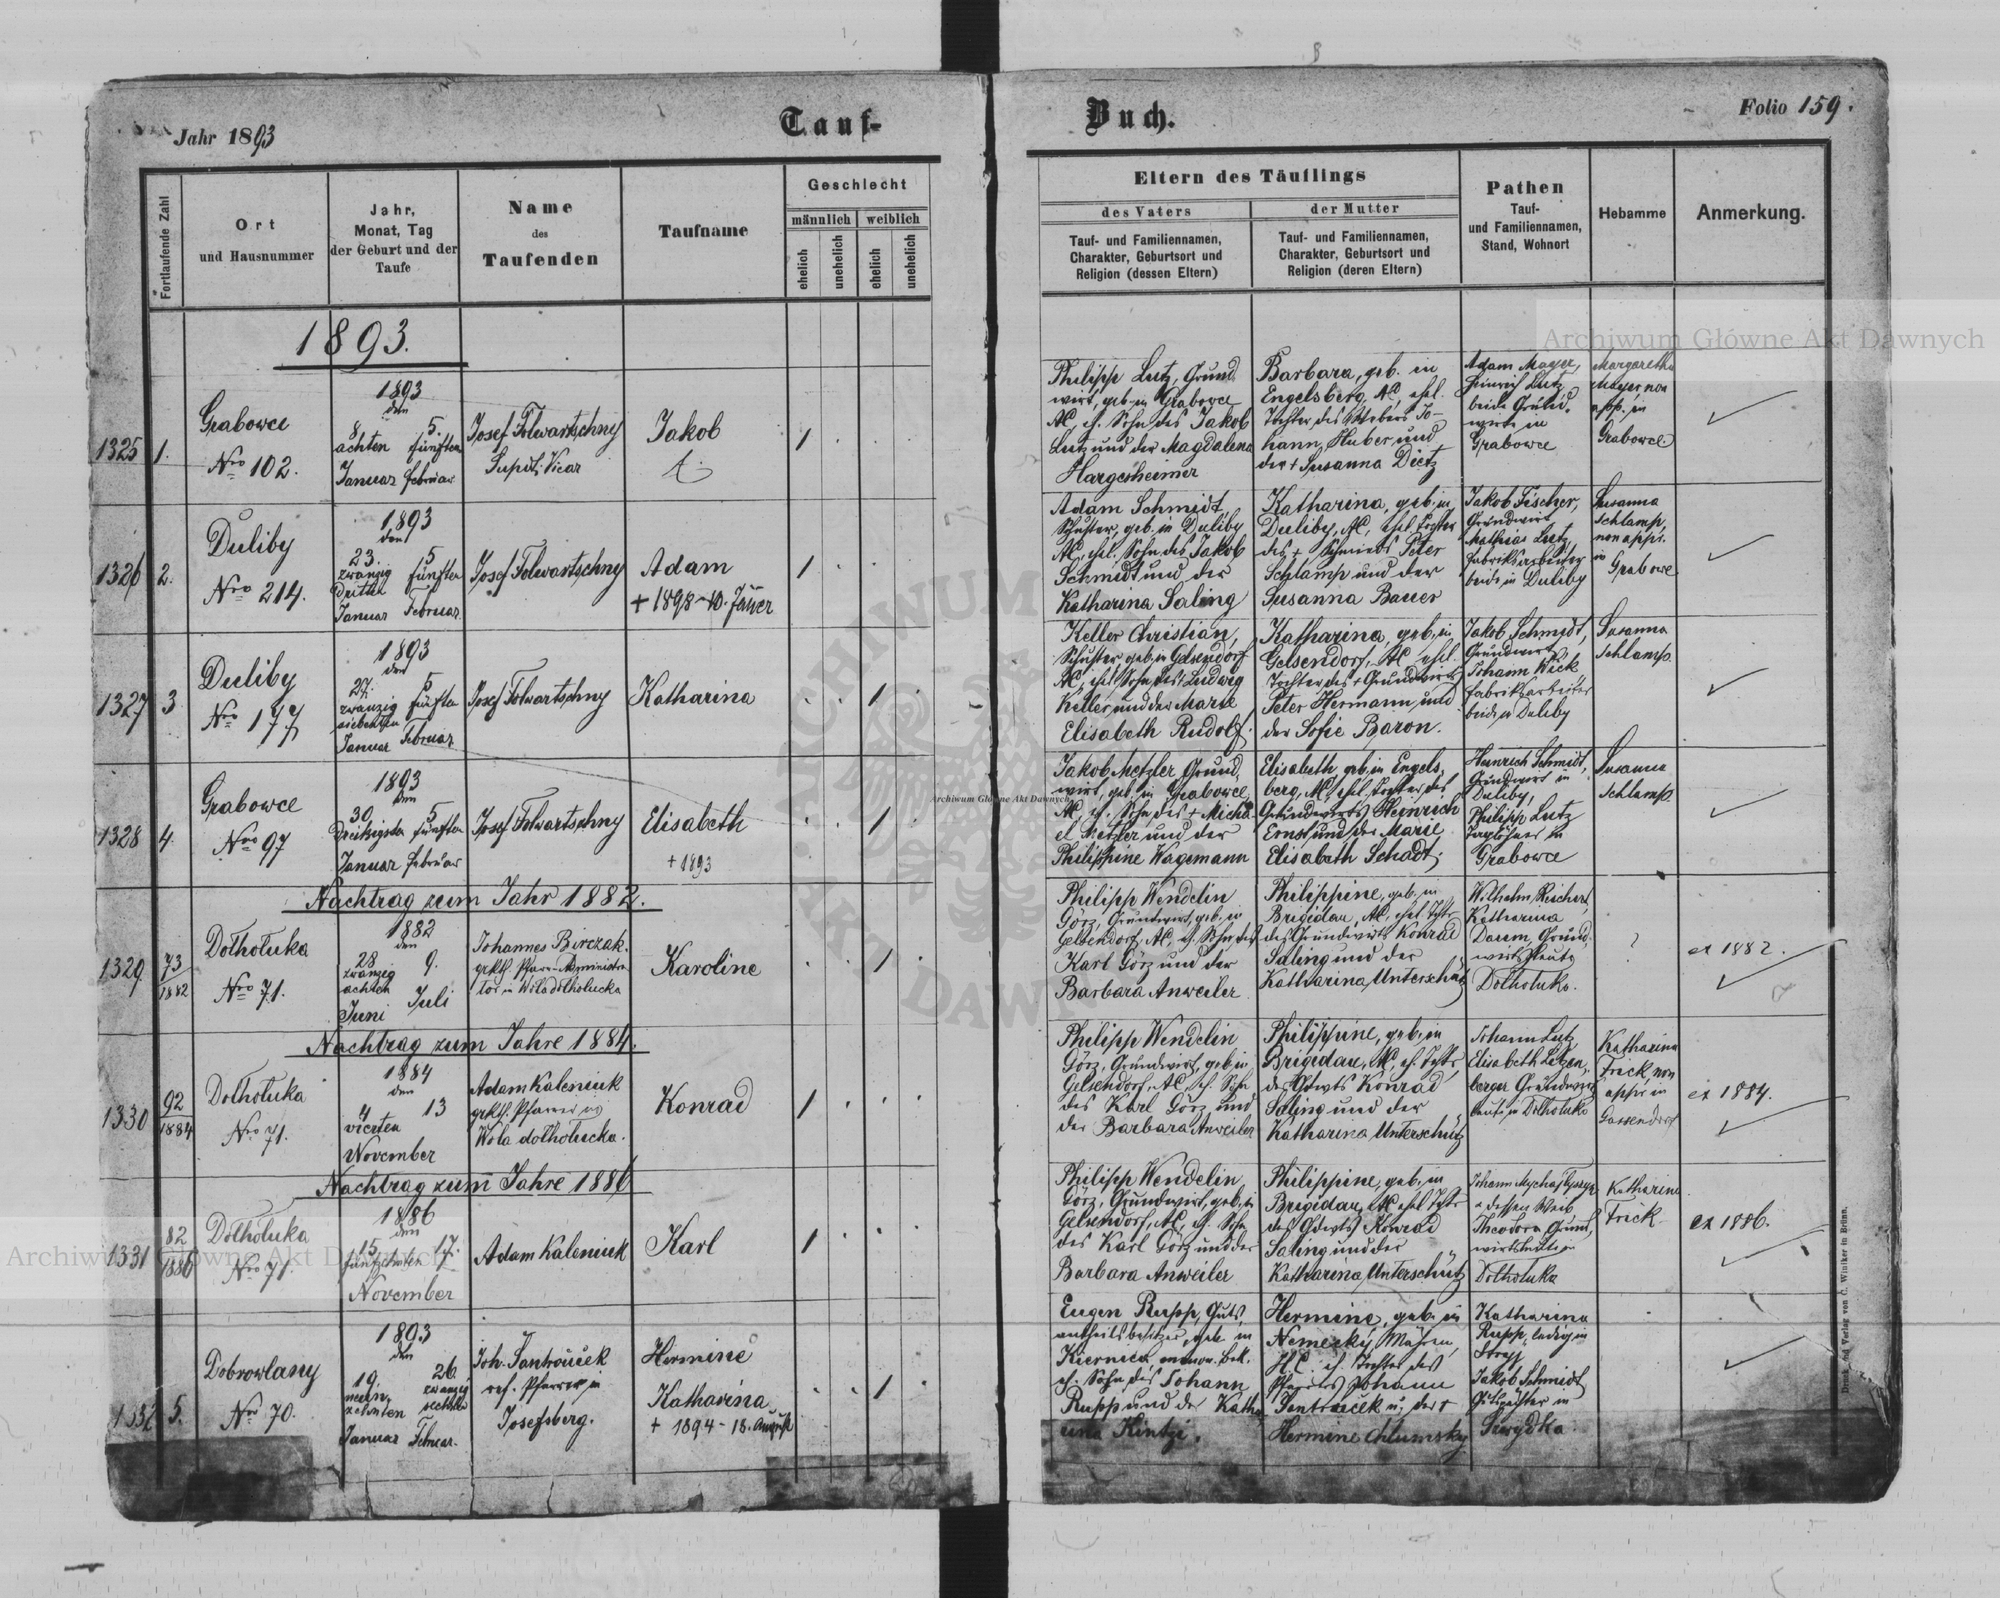 Jahr 1893
Tauf-
Buch.
Folio 159.
Fortlaufende Zahl
Ort
und Hausnummer
Jahr,
Monat, Tag
der Geburt und der
Taufe
Name
des
Taufenden
Taufname
Geschlecht
männlich
weiblich
ehelich
unehelich
ehelich
unehelich
Eltern des Täuflings
des Vaters
Tauf- und Familiennamen,
Charakter, Geburtsort und
Religion (dessen Eltern)
der Mutter
Tauf- und Familiennamen,
Charakter, Geburtsort und
Religion (deren Eltern)
Pathen
Tauf-
und Familiennamen,
Stand, Wohnort
Hebamme
Anmerkung.
1893.
1325
1.
Grabowce
Nro 102.
1893
den
8. 5.
achten fünften
Januar Februar
Josef Folwartschny
Supl. Vicar
Jakob
1
Philipp Lutz, Grund
wirt, geb. in Grabowce
AC, eh. Sohn des Jakob
Lutz und der Magdalena
Hargesheimer
Barbara, geb. in
Engelsberg, AC, ehel.
Tochter des Webers Jo-
hann Huber und
der + Susanna Dietz
Adam Mayer,
Heinrich Lutz
beide Grund-
wirte in
Grabowce
Margaretha
Mayer, non
app. in
Grabowce
1326
2.
Duliby
Nro 214.
1893
den
23. 5
zwanzig fünften
dritten
Januar Februar
Josef Folwartschny
Adam
+ 1898 - 10. Jänner
1
Adam Schmidt,
Schuster, geb. in Duliby
AC, ehel. Sohn des Jakob
Schmidt und der
Katharina Saling
Katharina, geb. in
Duliby, AC, ehel. Tochter
des + Schmieds Peter
Schlamp und der
Susanna Bauer
Jakob Fischer,
Grundwirt
Mathias Lutz,
Fabriksarbeiter
beide in Duliby
Susanna
Schlamp,
non appr.
in
Grabowce
1327
3
Duliby
Nro 177
1893
den
27. 5
zwanzig fünften
siebenten
Januar Februar
Josef Folwartschny
Katharina
1
Keller Christian,
Schuster, geb. in Gelsendorf
AC, ehel. Sohn des Ludwig
Keller und der Marie
Elisabeth Rudolf.
Katharina, geb. in
Gelsendorf, AC, ehel.
Tochter des + Grundwirts
Peter Hermann und
der Sofie Baron.
Jakob Schmidt,
Grundwirt,
Johann Wick,
Fabriksarbeiter
beide in Duliby
Susanna
Schlamp.
1328
4.
Grabowce
Nro 97
1893
den
30. 5
Dreißigsten fünften
Januar Februar
Josef Folwartschny
Elisabeth
+ 1893
1
Jakob Metzler, Grund,
wirt, geb. in Grabowce,
AC, eh. Sohn des + Micha-
el Metzler und der
Philippine Wagemann
Elisabeth, geb. in Engels,
berg, AC, ehel. Tochter des
Grundwirts Heinrich
Ernst und der Marie
Elisabeth Schadt.
Heinrich Schmidt,
Grundwirt in
Duliby,
Philipp Lutz
Taglöhner in
Grabowce
Susanna
Schlamp.
Nachtrag zum Jahr 1882.
1329
73
1882
Dolholuka
Nro 71.
1882
den
28 9.
zwanzig
achten
Juni Juli
Johannes Birczak.
grkth. Pfarr-Administra
tor in Wola dolholucka
Karoline
1
Philipp Wendelin
Görz, Grundwirt, geb. in
Gelsendorf, AC, eh. Sohn des
Karl Görz und der
Barbara Anweiler
Philippine, geb. in
Brigidau, AC, ehel. Tocht.
des Grundwirts Konrad
Saling und der
Katharina Unterschütz
Wilhelm Reichert,
Katharina
Daum, Grund-
wirtsleute
Dolholuka.
?
ex 1882.
Nachtrag zum Jahre 1884.
1330
92
1884
Dolholuka
Nro 71.
1884
den
4 13
vierten
November
Adam Kaleniuk
grkth. Pfarrer in
Wola dolholucka.
Konrad
1
Philipp Wendelin
Görz, Grundwirt, geb. in
Gelsendorf, AC, eh. Sohn
des Karl Görz und
der Barbara Anweiler
Philippine, geb. in
Brigidau, AC, eh. Tocht.
des Gdwts Konrad
Saling und der
Katharina Unterschütz
Johann Lutz
Elisabeth
berger Grundwirts
leute in Dolholuka
Katharina
Frick, non
appr. in
Gassendorf
ex 1884.
Nachtrag zum Jahre 1886
1331
82
1886
Dolholuka
Nro 71.
1886
den
15. 17.
fünfzehnten
November
Adam Kaleniuk
Karl
1
Philipp Wendelin
Görz, Grundwirt, geb. in
Gelsendorf, AC, eh. Sohn
des Karl Görz und der
Barbara Anweiler
Philippine, geb. in
Brigidau, AC ehel. Tocht.
des Gdwts Konrad
Saling und der
Katharina Unterschütz
Johann
dessen Weib
Theodora Grund,
wirtsleute in
Dolholuka
Katharina
Frick
ex 1886.
1332
5.
Dobrowlany
Nro 70.
1893
den
19. 26.
neun, zwanzig
zehnten sechsten
Januar Februar.
Joh. Jantrouček
ref. Pfarrer in
Josefsberg.
Hermine
Katharina
+ 1894 - 18. August
1
Eugen Rupp, Guts,
antheilsbesitzer, geb. in
Kiernica, menon. Bek.
eh. Sohn des Johann
Rupp und der Katha
rina Kintzi.
Hermine, geb. in
Nemecky, Mähren,
HC eh. Tochter des
Pfarrers Johann
Jantrouček u. der +
Hermine Chlumsky
Katharina
Rupp, ledig in
Stryj
Jakob Schmidt
Gutspächter in
Druck und Verlag von C. Winiker in Brünn.
Archiwum Główne Akt Dawnych
Archiwum Główne Akt Dawnych
Archiwum Główne Akt Dawnych